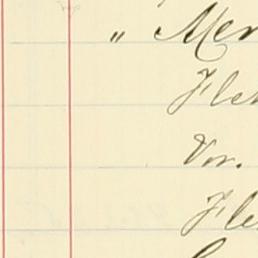 " Mer
Fle
Vor.
Fle